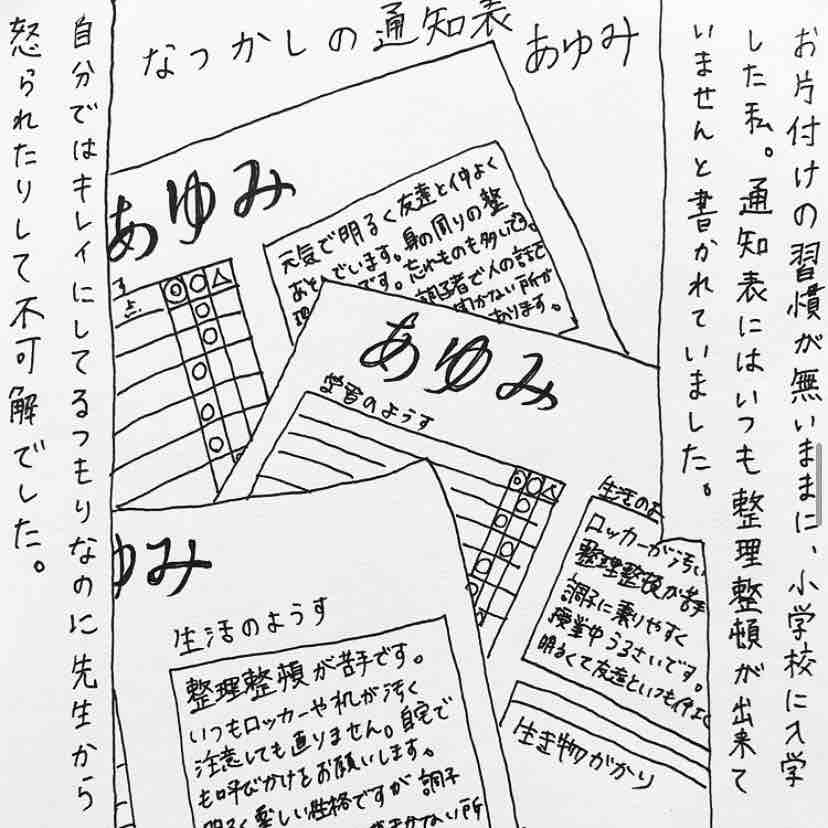 お片付けの習慣が無いままに、小学校に入学
した私。通知表にはいつも整理整頓が出来て
いませんと書かれていました。
なつかしの通知表 あゆみ
あゆみ
元気で明るく友達と仲よく
あそんでいます。身の回りの整
です。忘れものも多いです。
調子者で人の話で
聞かない所が
あります。
◎○△
あゆみ
学習のようす
◎○△
生活の
ロッカーが汚い
整理整頓が苦手
調子に乗りやすく
授業中うるさいです。
明るくて友達といつも仲よく
生き物がかり
ゆみ
生活のようす
整理整頓が苦手です。
いつもロッカーや机が汚く
注意しても直りません。自宅で
も呼びかけをお願いします。
明るく楽しい性格ですが調子
きかない所
自分ではキレイにしてるつもりなのに先生から
怒られたりして不可解でした。